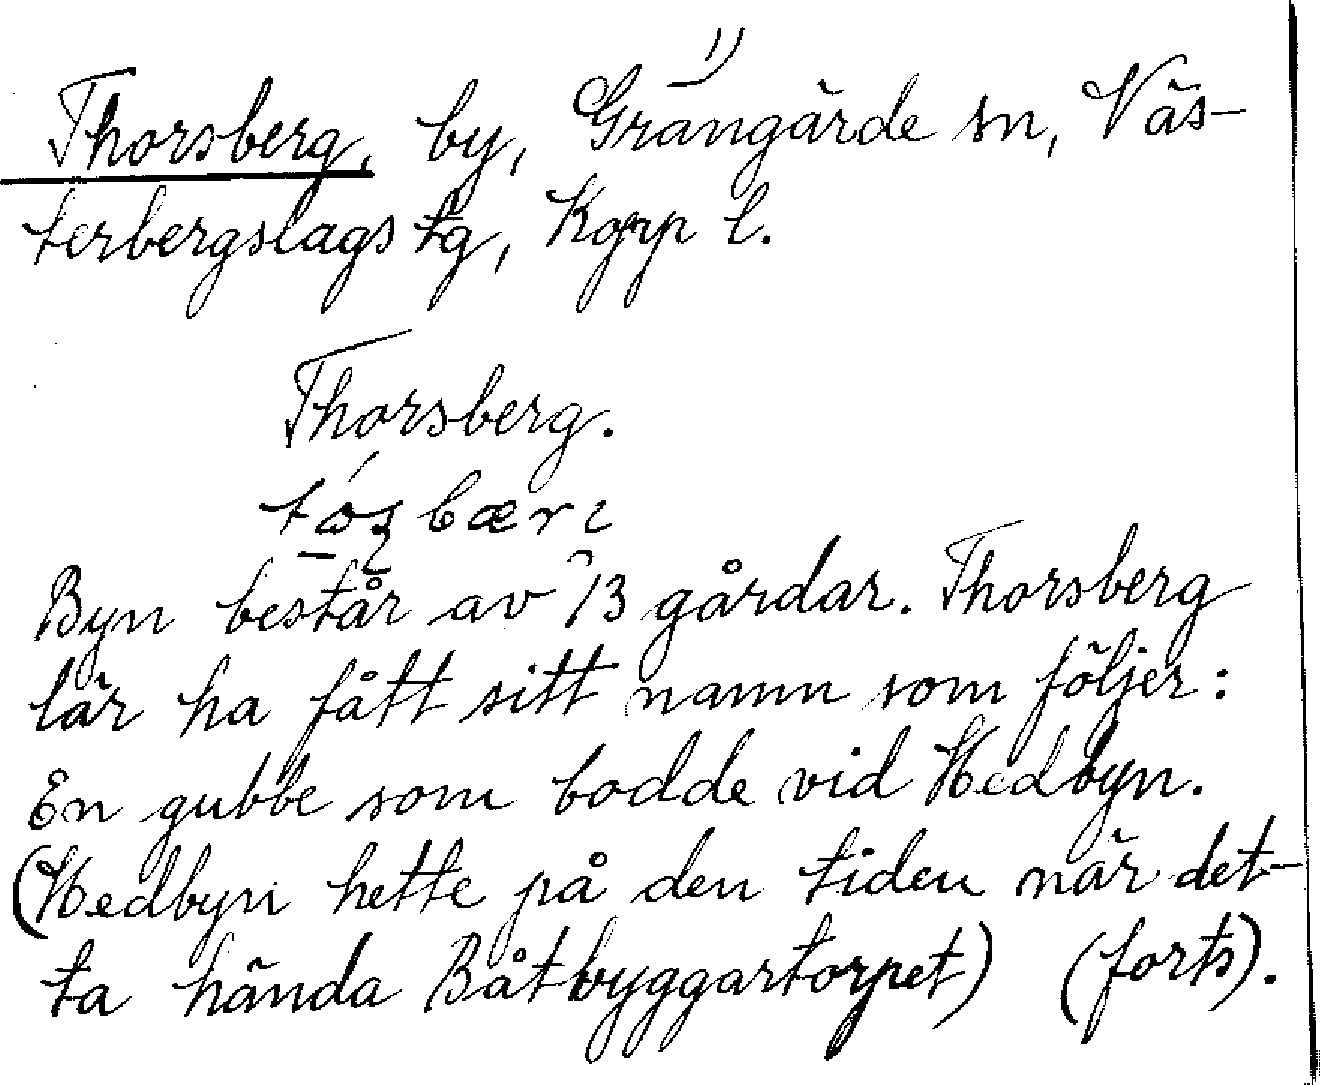 1)
Thorsberg, by, Grangärde sn, Väs-
terbergslags tg, Kopp l.
Thorsberg.
Byn består av 13 gårdar. Thorsberg
lär ha fått sitt namn som följer:
En gubbe som bodde vid Hedbyn.
(Hedbyn hette på den tiden när det-
ta hända Båtbyggartorpet) (forts).